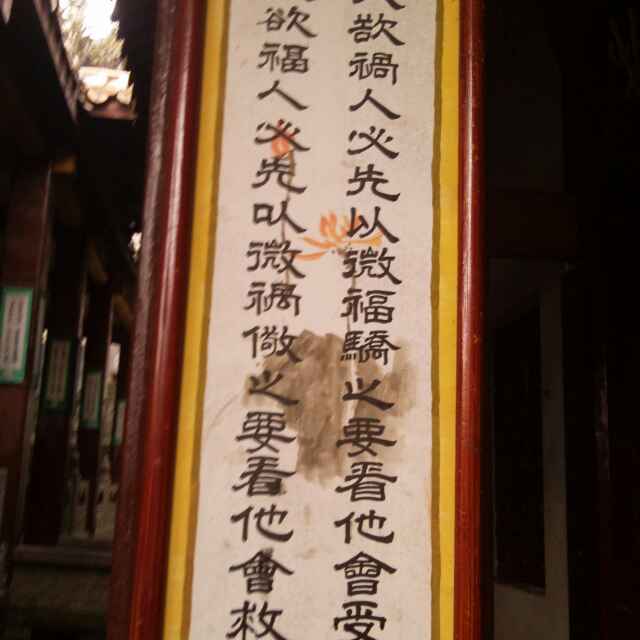 欲禍人必先以微福驕之要看他會受
欲福人必先以微禍儆之要看他會救